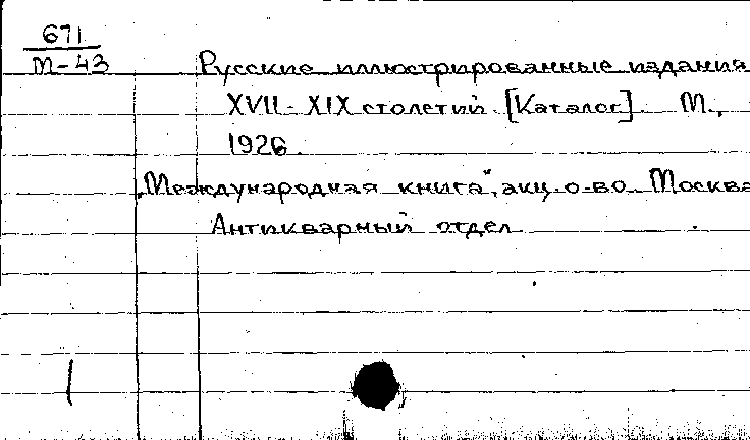 671
М-43
Русские иллюстрированные издания
XVII - XIX столетий. [Каталог]. М.,
1926.
„Международная книга", акц. о-во. Москва
Антикварный отдел